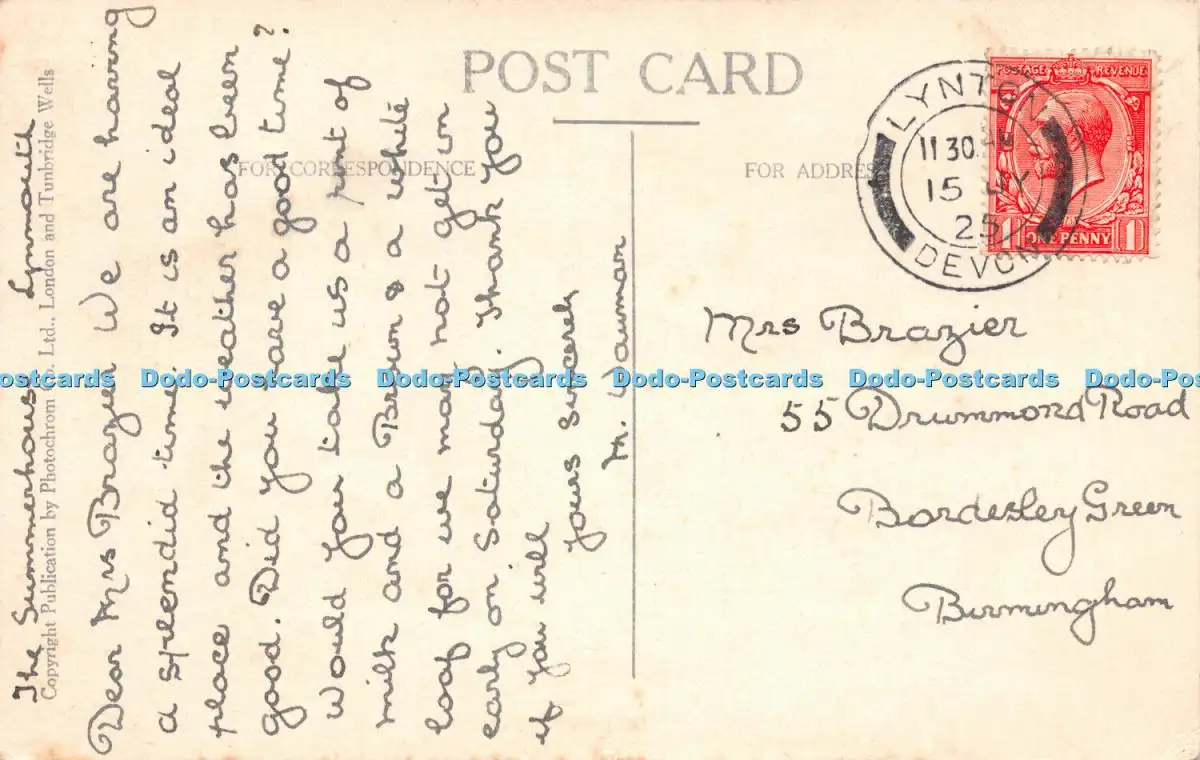 POST CARD
FOR CORRESPONDENCE
FOR ADDRESS
Copyright Publication by Photochrom Co. Ltd., London and Tunbridge Wells
The Summerhouse Lynmouth
Dear Mrs Brazier We are having
a splendid time. It is an ideal
place and the weather has been
good. Did you have a good time?
Would you take us a pint of
milk and a Brown & a white
loaf for we may not get in
early on Saturday. Thank you
if you will
yours sincerely
M.
LYNTON
11 30 AM
15 JY
25
DEVON
POSTAGE REVENUE
1 ONE PENNY 1
Mrs Brazier
55 Drummond Road
Bordesley Green
Birmingham
Dodo-Postcards Dodo-Postcards Dodo-Postcards Dodo-Postcards Dodo-Postcards